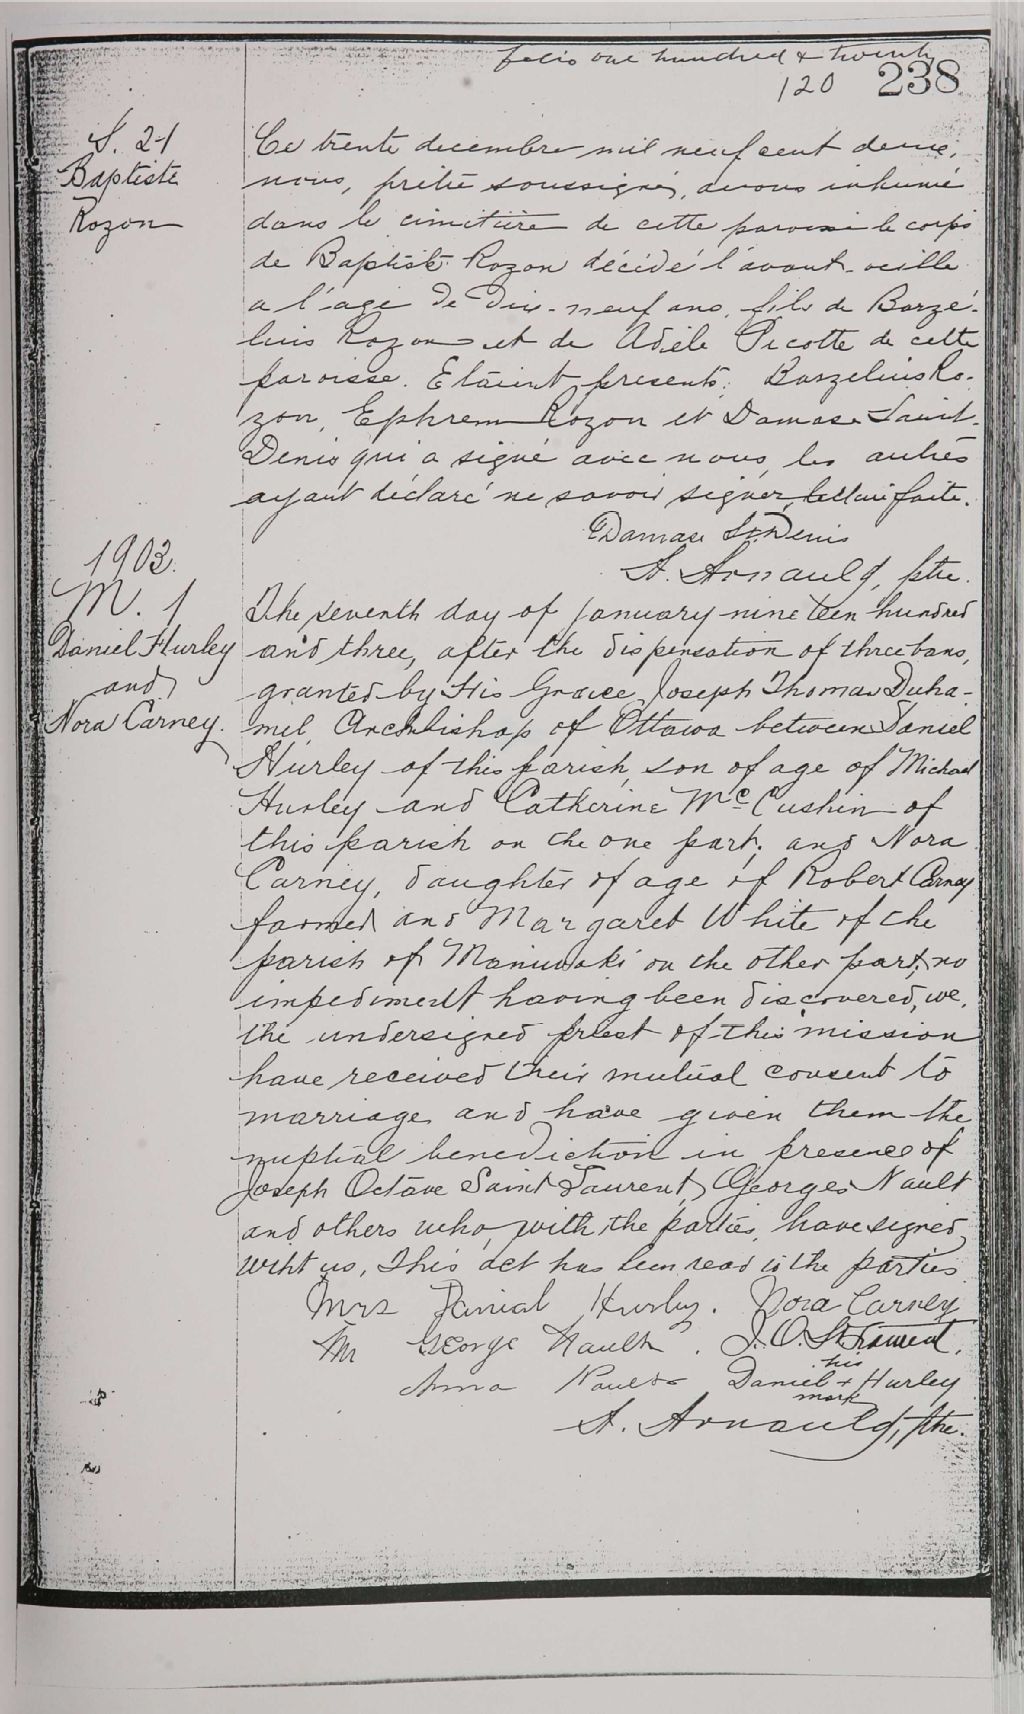 folio one hundred & twenty
120 238
S. 21
Baptiste
Rozon
Ce trente decembre mil neuf cent deux,
nous, prêtre soussigné, avons inhumé
dans le cimetière de cette paroisse le corps
de Baptiste Rozon décédé l'avant-veille
a l'age de dix-neuf ans, fils de Barzé-
linis Rozon et de Adèle Picotte de cette
paroisse. Etaient presents: Barzelinis Ro-
zon, Ephrem Rozon et Damase Saint-
Denis qui a signé avec nous, les autres
ayant déclaré ne savoir signer, lecture faite.
Damase St Denis
A. Arnauld, ptre.
1903.
M. 1
Daniel Hurley
and
Nora Carney.
The seventh day of January nineteen hundred
and three, after the dispensation of three bans,
granted by His Grace Joseph Thomas Duha-
mel, Archbishop of Ottawa between Daniel
Hurley of this parish, son of age of Michael
Hurley and Catherine McCushin of
this parish on the one part; and Nora
Carney, daughter of age of Robert Carney
farmer and Margaret White of the
parish of Maniwaki on the other part; no
impediment having been discovered, we,
the undersigned priest of this mission
have received their mutual consent to
marriage and have given them the
nuptial benediction in presence of
Joseph Octave Saint Laurent, Georges Nault
and others who, with the parties, have signed
wiht us, This act has been read to the parties
Mrs Danial Hurley. Nora Carney
Mr George Nault. J. O. St Laurent.
Anna Nault Daniel his + mark Hurley
A. Arnauld, ptre.